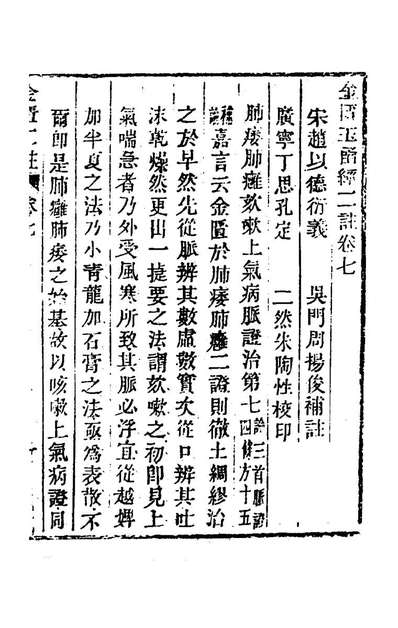 金匱玉函經二註卷七
宋趙以德衍義　吳門周揚俊補註
廣寧丁思孔定　二然朱陶性校印
肺痿肺癰欬嗽上氣病脈證治第七論三首脈證四條方十五
補註嘉言云金匱於肺痿肺癰二證則徹土綢繆治
之於早然先從脈辨其數虛數實次從口辨其吐
沫乾燥然更出一捷要之法謂欬嗽之初卽見上
氣喘急者乃外受風寒所致其脈必浮宜從越婢
加半夏之法乃小青龍加石膏之法亟爲表散不
爾卽是肺癰肺痿之始基故以咳嗽上氣病證同
金匱二註 卷七 一